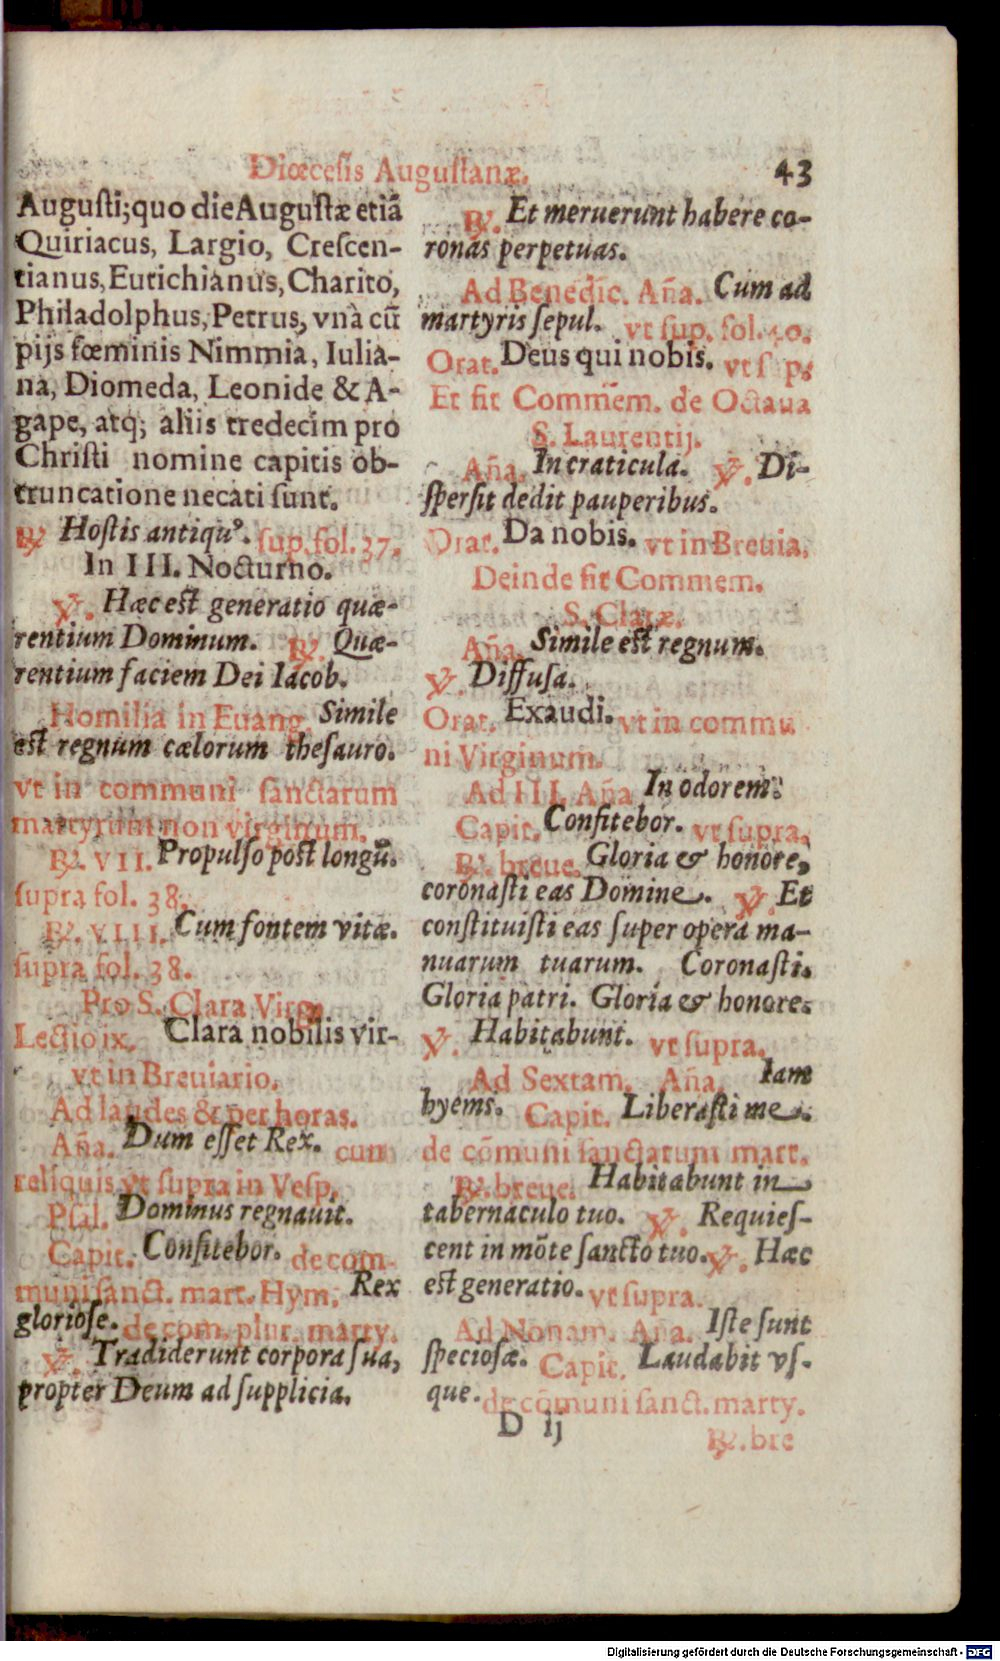 Diœcesis Augustanæ. 43
Augusti; quo die Augustæ etiā
Quiriacus, Largio, Crescen-
tianus, Eutichianus, Charito,
Philadolphus, Petrus, vnà cū
pijs fœminis Nimmia, Iulia-
na, Diomeda, Leonide & A-
gape, atq; aliis tredecim pro
Christi nomine capitis ob-
truncatione necati sunt.
℟. Hostis antiquꝰ. sup. fol. 37.
In III. Nocturno.
℣. Hæc est generatio quæ-
rentium Dominum. ℟. Quæ-
rentium faciem Dei Iacob.
Homilia in Euang. Simile
est regnum cælorum thesauro.
vt in communi sanctarum
martyrum non virginum.
℟. VII. Propulso post longū.
supra fol. 38.
℟. VIII. Cum fontem vitæ.
supra fol. 38.
Pro S. Clara Virg.
Lectio ix. Clara nobilis vir-
vt in Breuiario.
Ad laudes & per horas.
Aña. Dum esset Rex. cum
reliquis vt supra in Vesp.
Psal. Dominus regnauit.
Capit. Confitebor. de com-
muni sanct. mart. Hym. Rex
gloriose. de com. plur. marty.
℣. Tradiderunt corpora sua,
propter Deum ad supplicia.
℟. Et meruerunt habere co-
ronas perpetuas.
Ad Benedic. Aña. Cum ad
martyris sepul. vt sup. fol. 40.
Orat. Deus qui nobis. vt sup.
Et fit Commēm. de Octaua
S. Laurentij.
Aña. In craticula. ℣. Di-
spersit dedit pauperibus.
Orat. Da nobis. vt in Breuia.
Deinde fit Commem.
S. Claræ.
Aña. Simile est regnum.
℣. Diffusa.
Orat. Exaudi. vt in commu
ni Virginum.
Ad III. Aña In odorem.
Capit. Confitebor. vt supra.
℟. breue. Gloria & honore,
coronasti eas Domine. ℣. Et
constituisti eas super opera ma-
nuarum tuarum. Coronasti.
Gloria patri. Gloria & honore.
℣. Habitabunt. vt supra.
Ad Sextam. Aña. Iam
hyems. Capit. Liberasti me.
de cōmuni sanctarum mart.
℟. breue. Habitabunt in
tabernaculo tuo. ℣. Requies-
cent in mōte sancto tuo. ℣. Hæc
est generatio. vt supra.
Ad Nonam. Aña. Iste sunt
speciosæ. Capit. Laudabit vs-
que. de cōmuni sanct. marty.
D ij
℟. bre
Digitalisierung gefördert durch die Deutsche Forschungsgemeinschaft - DFG